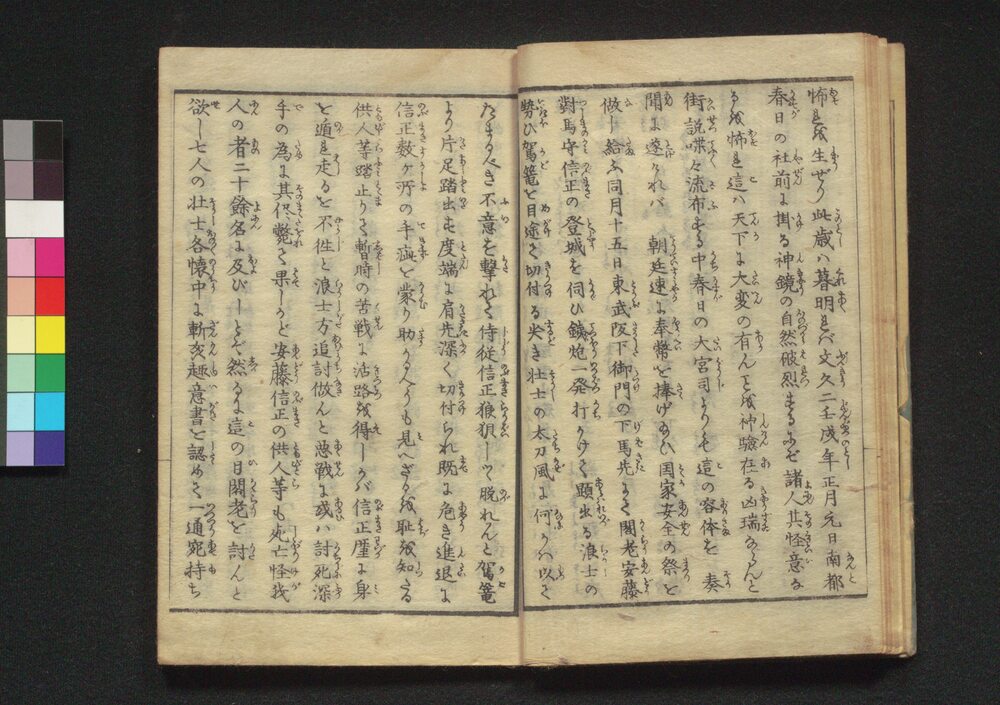 怖れを生ぜり此歳ハ暮明れバ文久二壬戌年正月元日南都
春日の社前に掛る神鏡の自然破烈するにぞ諸人其怪意な
るを怖れ這ハ天下に大変の有んとを神験在る凶瑞ならんと
街説喋々流布する中春日の大宮司よりも這の容体を　奏
聞に遂けれバ　朝廷速に奉幣を捧げ給ひ国家安全の祭を
做し給ふ同月十五日東武阪下御門の下馬先にて閣老安藤
對馬守信正の登城を伺ひ鉄炮一発打かけて顕出る浪士の
勢ひ駕篭を目途て切付る尖き壮士の太刀風に何かハ以て
たまるべき不意を撃れて侍従信正狼狽しつゝ脱れんと駕篭
より片足踏出す度端に肩先深く切付られ既に危き進退に
信正数ヶ所の手疵を蒙り助かるべうも見へざるを恥を知たる
供人等踏止りて暫時の苦戦に活路を得しかバ信正厪に身
を遁れ走るを不性と浪士方追討做んと悪戦に或ハ討死深
手の為に其侭斃て果しかど安藤信正の供人等も死亡怪我
人の者二十餘名に及びしとぞ然るに這の日閣老を討んと
欲し七人の壮士各懐中に斬姦趣意書を認めて一通宛持ち